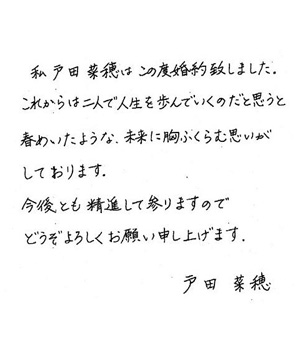 私戸田菜穂はこの度婚約致しました。
これからは二人で人生を歩んでいくのだと思うと
春めいたような、未来に胸ふくらむ思いが
しております。
今後とも精進して参りますので
どうぞよろしくお願い申し上げます。
戸田 菜穂